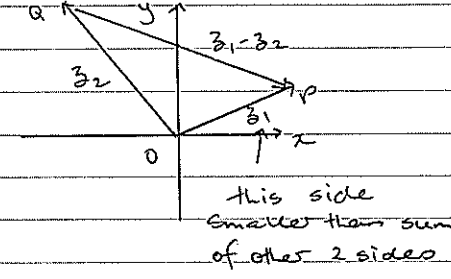 Q y
z₁-z₂
z₂
P
z₁
O x
this side
smaller than sum
of other 2 sides